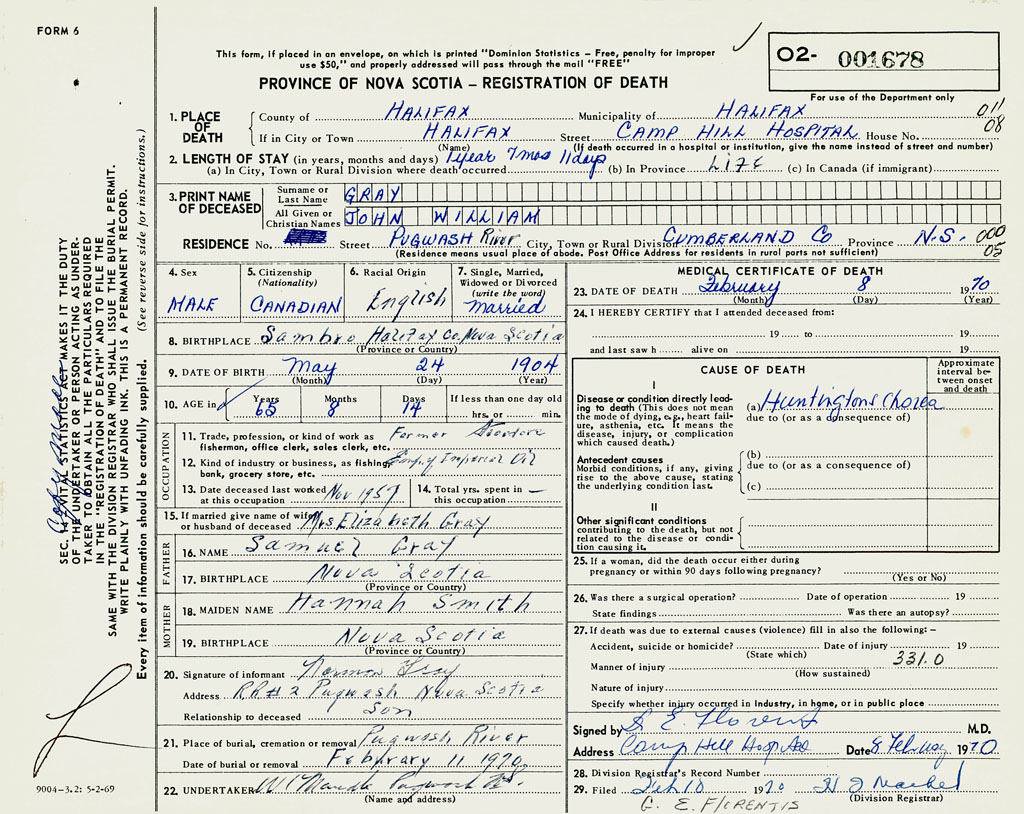 FORM 6
This form, if placed in an envelope, on which is printed "Dominion Statistics – Free, penalty for improper
use $50," and properly addressed will pass through the mail "FREE"
PROVINCE OF NOVA SCOTIA – REGISTRATION OF DEATH
O2- 001678
For use of the Department only
1. PLACE OF DEATH
County of HALIFAX Municipality of HALIFAX 011
If in City or Town HALIFAX Street CAMP HILL HOSPITAL House No. 08
(Name) (If death occurred in a hospital or institution, give the name instead of street and number)
2. LENGTH OF STAY (in years, months and days) 1 year 7 mos 11 days
(a) In City, Town or Rural Division where death occurred (b) In Province LIFE (c) In Canada (if immigrant)
3. PRINT NAME OF DECEASED
Surname or Last Name GRAY
All Given or Christian Names JOHN WILLIAM
RESIDENCE No. Street PUGWASH River City, Town or Rural Division CUMBERLAND Co Province N.S. 000
(Residence means usual place of abode. Post Office Address for residents in rural parts not sufficient) 05
4. Sex MALE
5. Citizenship (Nationality) CANADIAN
6. Racial Origin English
7. Single, Married, Widowed or Divorced (write the word) Married
8. BIRTHPLACE Sambro Halifax Co, Nova Scotia
(Province or Country)
9. DATE OF BIRTH May 24 1904
(Month) (Day) (Year)
10. AGE in Years 65 Months 8 Days 14 If less than one day old hrs. or min.
OCCUPATION
11. Trade, profession, or kind of work as fisherman, office clerk, sales clerk, etc. Former
12. Kind of industry or business, as fishing, bank, grocery store, etc. Imperial Oil
13. Date deceased last worked at this occupation Nov 1957
14. Total yrs. spent in this occupation —
15. If married give name of wife or husband of deceased Mrs Elizabeth Gray
FATHER
16. NAME Samuel Gray
17. BIRTHPLACE Nova Scotia
(Province or Country)
MOTHER
18. MAIDEN NAME Hannah Smith
19. BIRTHPLACE Nova Scotia
(Province or Country)
20. Signature of informant Norman Gray
Address RR#2 Pugwash Nova Scotia
Relationship to deceased Son
21. Place of burial, cremation or removal Pugwash River
Date of burial or removal February 11 1970
22. UNDERTAKER Pugwash
(Name and address)
MEDICAL CERTIFICATE OF DEATH
23. DATE OF DEATH February 8 1970
(Month) (Day) (Year)
24. I HEREBY CERTIFY that I attended deceased from:
19 to 19
and last saw h alive on 19
CAUSE OF DEATH
Approximate interval between onset and death
I
Disease or condition directly leading to death (This does not mean the mode of dying, e.g., heart failure, asthenia, etc. It means the disease, injury, or complication which caused death.)
(a) Huntingtons Chorea
due to (or as a consequence of)
Antecedent causes
Morbid conditions, if any, giving rise to the above cause, stating the underlying condition last.
(b)
due to (or as a consequence of)
(c)
II
Other significant conditions
contributing to the death, but not related to the disease or condition causing it.
25. If a woman, did the death occur either during pregnancy or within 90 days following pregnancy?
(Yes or No)
26. Was there a surgical operation? Date of operation 19
State findings Was there an autopsy?
27. If death was due to external causes (violence) fill in also the following: –
Accident, suicide or homicide? Date of injury 19
(State which) 331.0
Manner of injury
(How sustained)
Nature of injury
Specify whether injury occurred in industry, in home, or in public place
Signed by M.D.
Address Camp Hill Hospital Date 8 February 1970
28. Division Registrar's Record Number
29. Filed Feb 10 1970
(Division Registrar)
G. E. FLORENTIS
SEC. 14 VITAL STATISTICS ACT MAKES IT THE DUTY
OF THE UNDERTAKER OR PERSON ACTING AS UNDER-
TAKER TO OBTAIN ALL THE PARTICULARS REQUIRED
IN THE "REGISTRATION OF DEATH" AND TO FILE THE
SAME WITH THE DIVISION REGISTRAR WHO SHALL ISSUE THE BURIAL PERMIT.
WRITE PLAINLY WITH UNFADING INK. THIS IS A PERMANENT RECORD.
Every item of information should be carefully supplied. (See reverse side for instructions.)
9004–3.2: 5-2-69